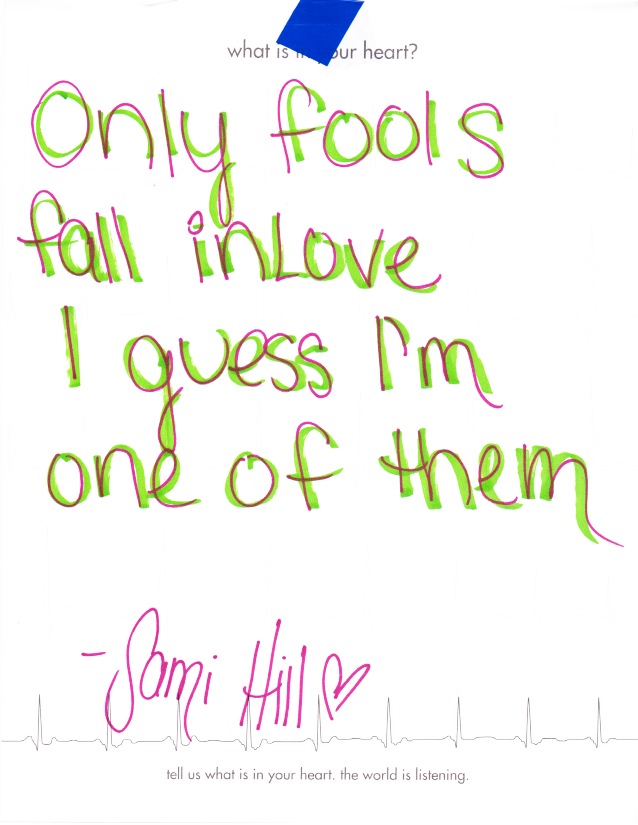 what is in your heart?
Only fools
fall inLove
I guess I'm
one of them
- Sami Hill
tell us what is in your heart. the world is listening.